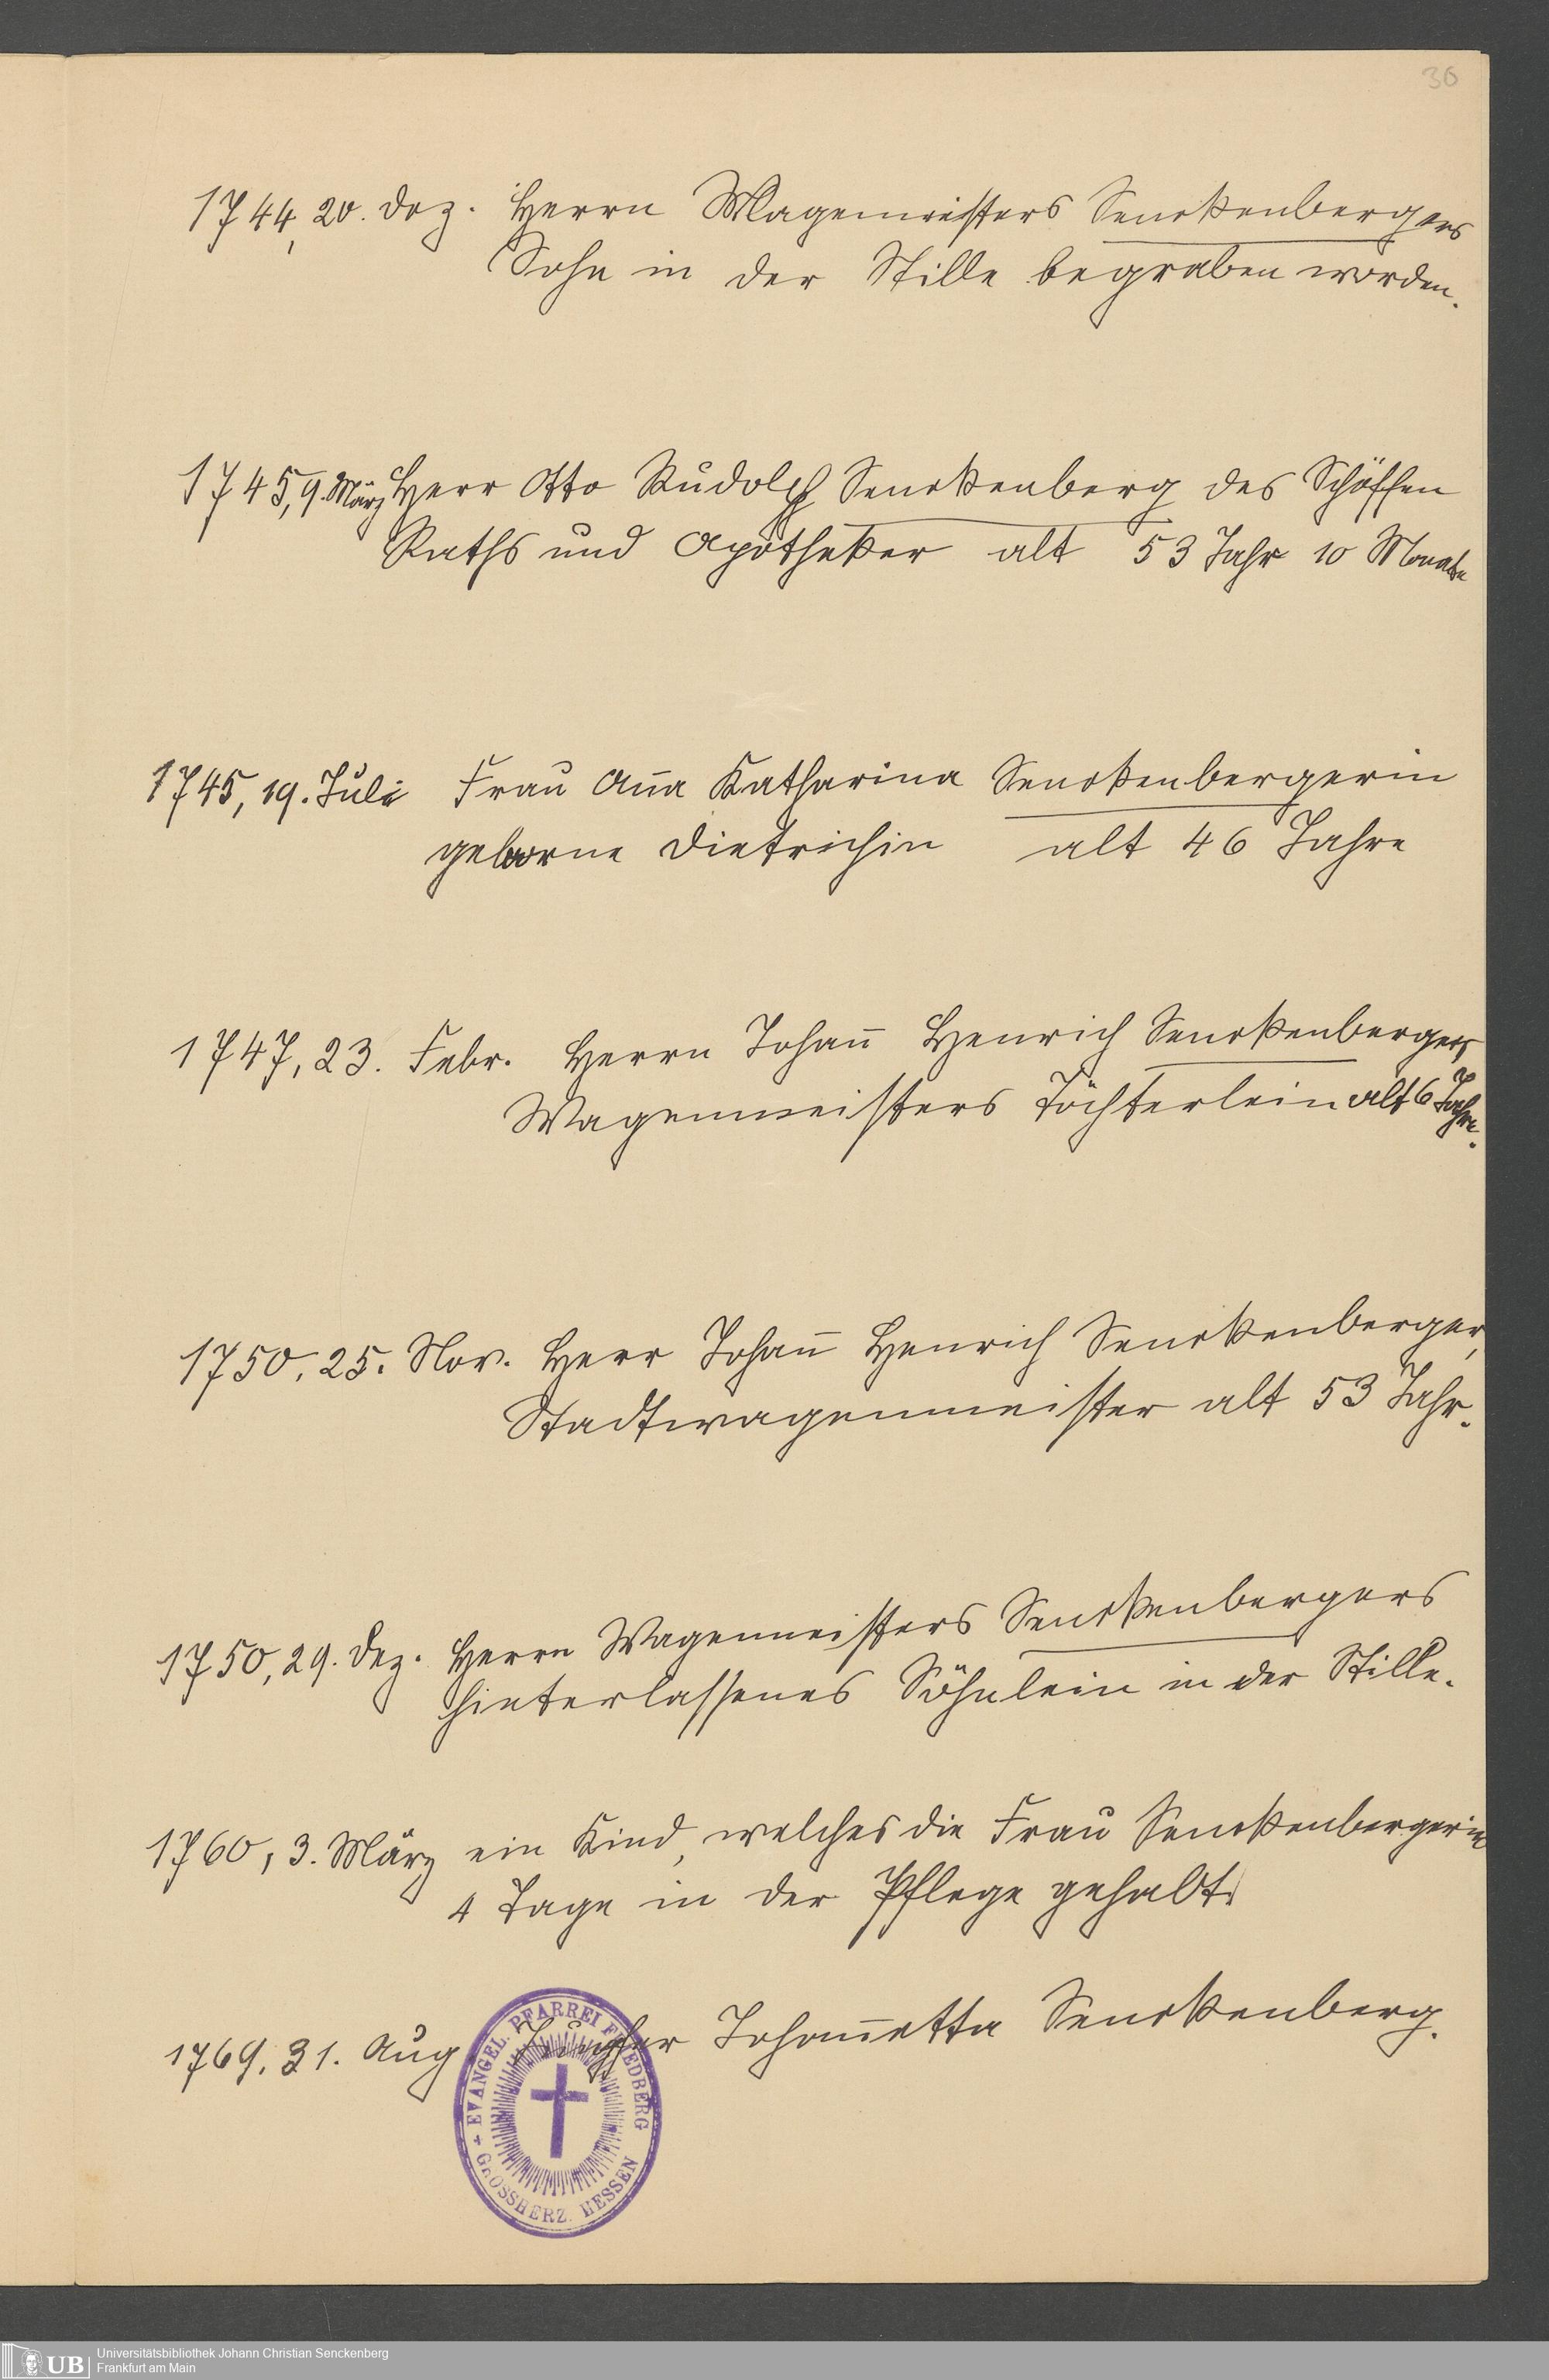 36
1744, 20. Dez. Herrn Wagemeisters Senckenbergers
Sohn in der Stille begraben worden.
1745, 9. März Herr Otto Rudolph Senckenberg des Schöffen
Raths und Apotheker alt 53 Jahr 10 Monate
1745, 19. Juli Frau Ana̅ Katharina Senckenbergerin
geborne Dietrichin alt 46 Jahre
1747, 23. Febr. Herrn Johan̅ Henrich Senckenbergers
Wagenmeisters Töchterlein alt 6 Jahre.
1750, 25. Nov. Herr Johan̅ Henrich Senckenberger,
Stadtwagenmeister alt 53 Jahr.
1750, 29. Dez. Herrn Wagenmeisters Senckenbergers
hinterlassenes Söhnlein in der Stille.
1760, 3. März ein Kind, welches die Frau Senckenbergerin
4 Tage in der Pflege gehabt.
1769, 31. Aug Jungfer Johan̅etta Senckenberg.
EVANGEL. PFARREI FRIEDBERG
GROSSHERZ. HESSEN
UB
Universitätsbibliothek Johann Christian Senckenberg
Frankfurt am Main